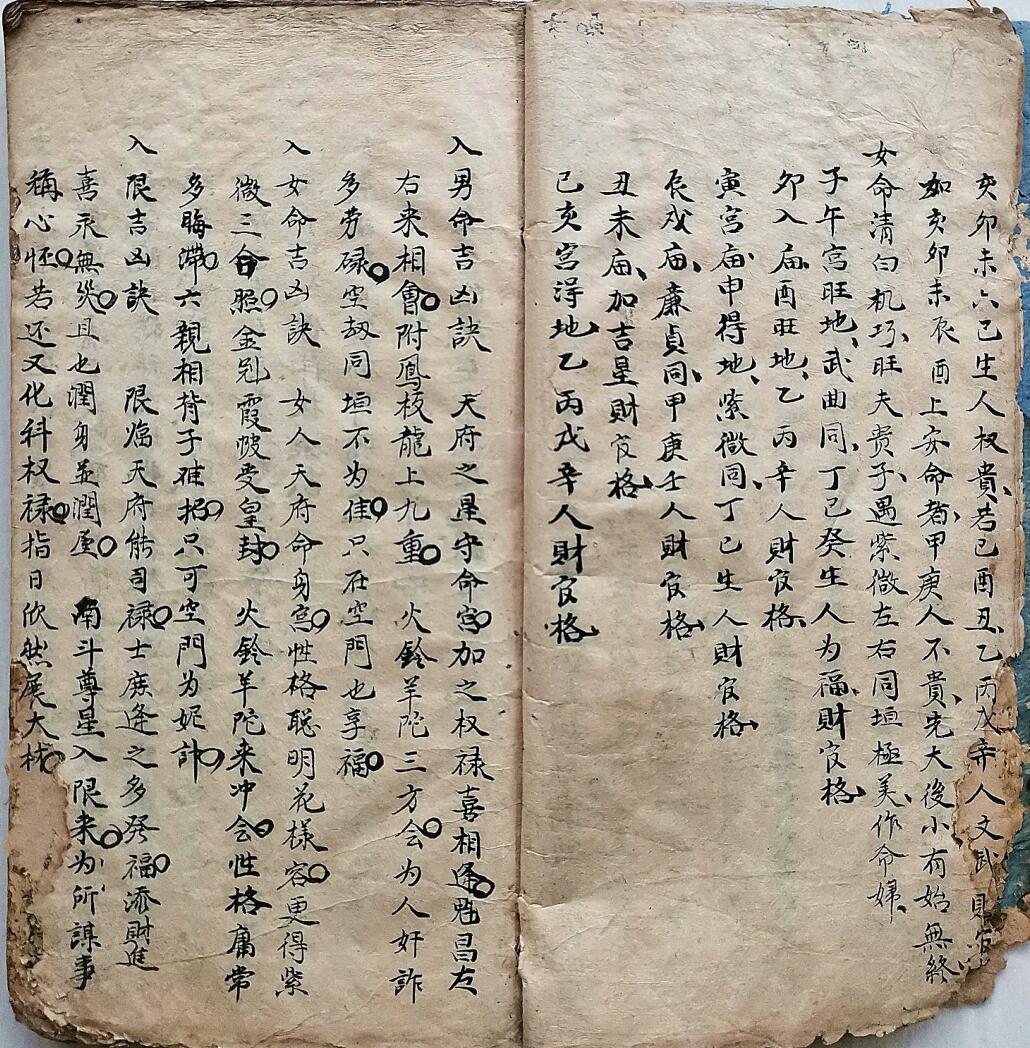 亥卯未六己生人权貴、若己酉丑、乙丙戊辛人文武財官
如亥卯未辰酉上安命者、甲庚人不貴、先大後小有始無終
女命清白机巧、旺夫贵子、遇紫微左右同垣極美、作命婦、
子午宮旺地、武曲同、丁己癸生人为福財官格、
卯入庙、酉旺地、乙丙辛人財官格、
寅宮庙申得地、紫微同、丁己生人財官格、
辰戌庙、廉貞同、甲庚壬人財官格、
丑未庙、加吉星財官格、
巳亥宮得地乙丙戊辛人財官格、
入男命吉凶訣 天府之星守命宫○加之权禄喜相逢○魁昌左
右来相會○附鳳枝龍上九重○ 火鈴羊陀三方会○为人奸詐
多劳碌○空劫同垣不为佳○只在空門也享福○
入女命吉凶訣 女人天府命身宫○性格聪明花樣容○更得紫
微三合照○金冠霞帔受皇封○ 火鈴羊陀来冲会○性格庸常
多晦滯○六親相背子难招○只可空門为妮計○
入限吉凶訣 限临天府能司禄○士庶逢之多発福○添財進
喜永無災○且也潤身並潤屋○ 南斗尊星入限来○为所謀事
稱心怀○若还又化科权禄○指日欣然展大材○